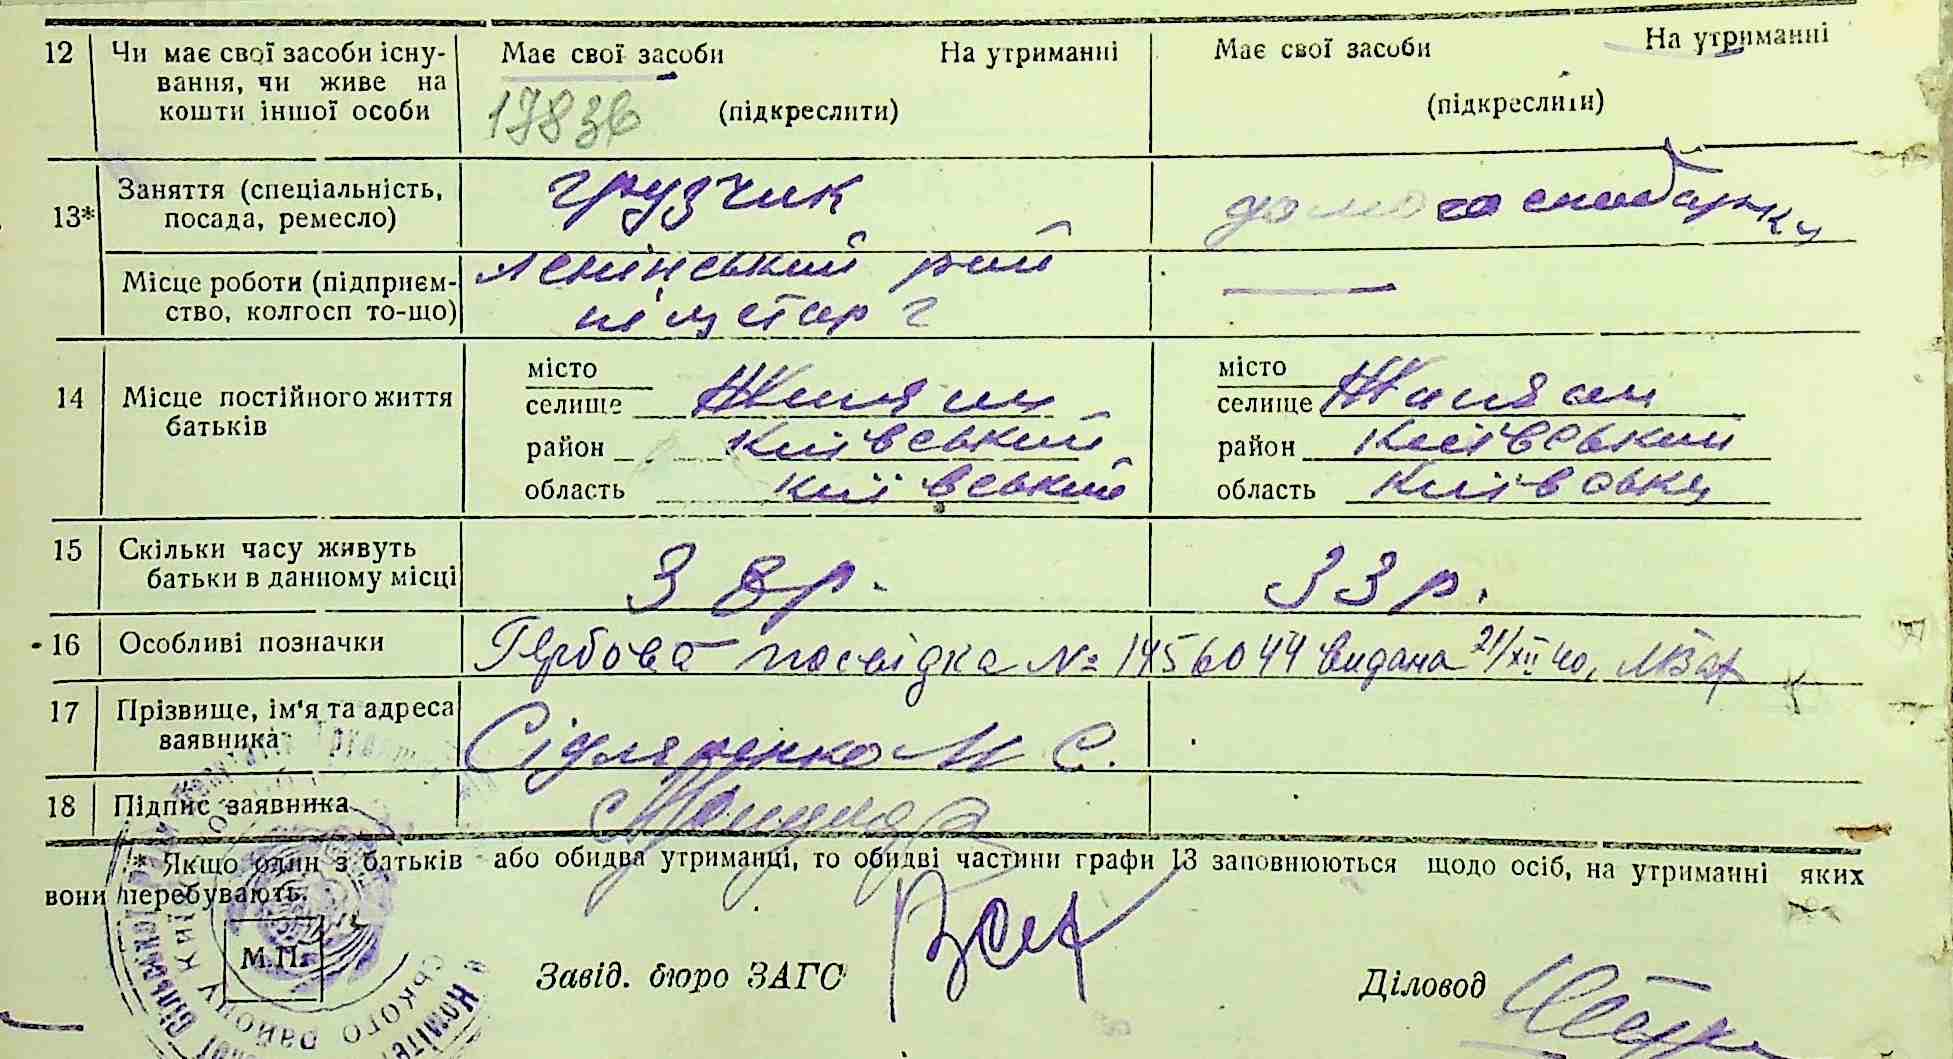 12 Чи має свої засоби існу- Має свої засоби На утриманні Має свої засоби На утриманні
вання, чи живе на
кошти іншої особи 17836 (підкреслити) (підкреслити)
13* Заняття (спеціальність, грузчик домогосподарка
посада, ремесло)
Місце роботи (підприєм- Ленінський рай
ство, колгосп то-що) піщеторг
14 Місце постійного життя місто місто
батьків селище Жиляни селище Жиляни
район Київський район Київський
область Київський область Київська
15 Скільки часу живуть 38 р. 33 р.
батьки в данному місці
16 Особливі позначки Гербова посвідка № 1456044 видана 21/XII 40,
17 Прізвище, ім'я та адреса Сідляренко М С.
заявника
18 Підпис заявника
* Якщо один з батьків або обидва утриманці, то обидві частини графи 13 заповнюються щодо осіб, на утриманні яких
вони перебувають.
М.П.
Завід. бюро ЗАГС Діловод